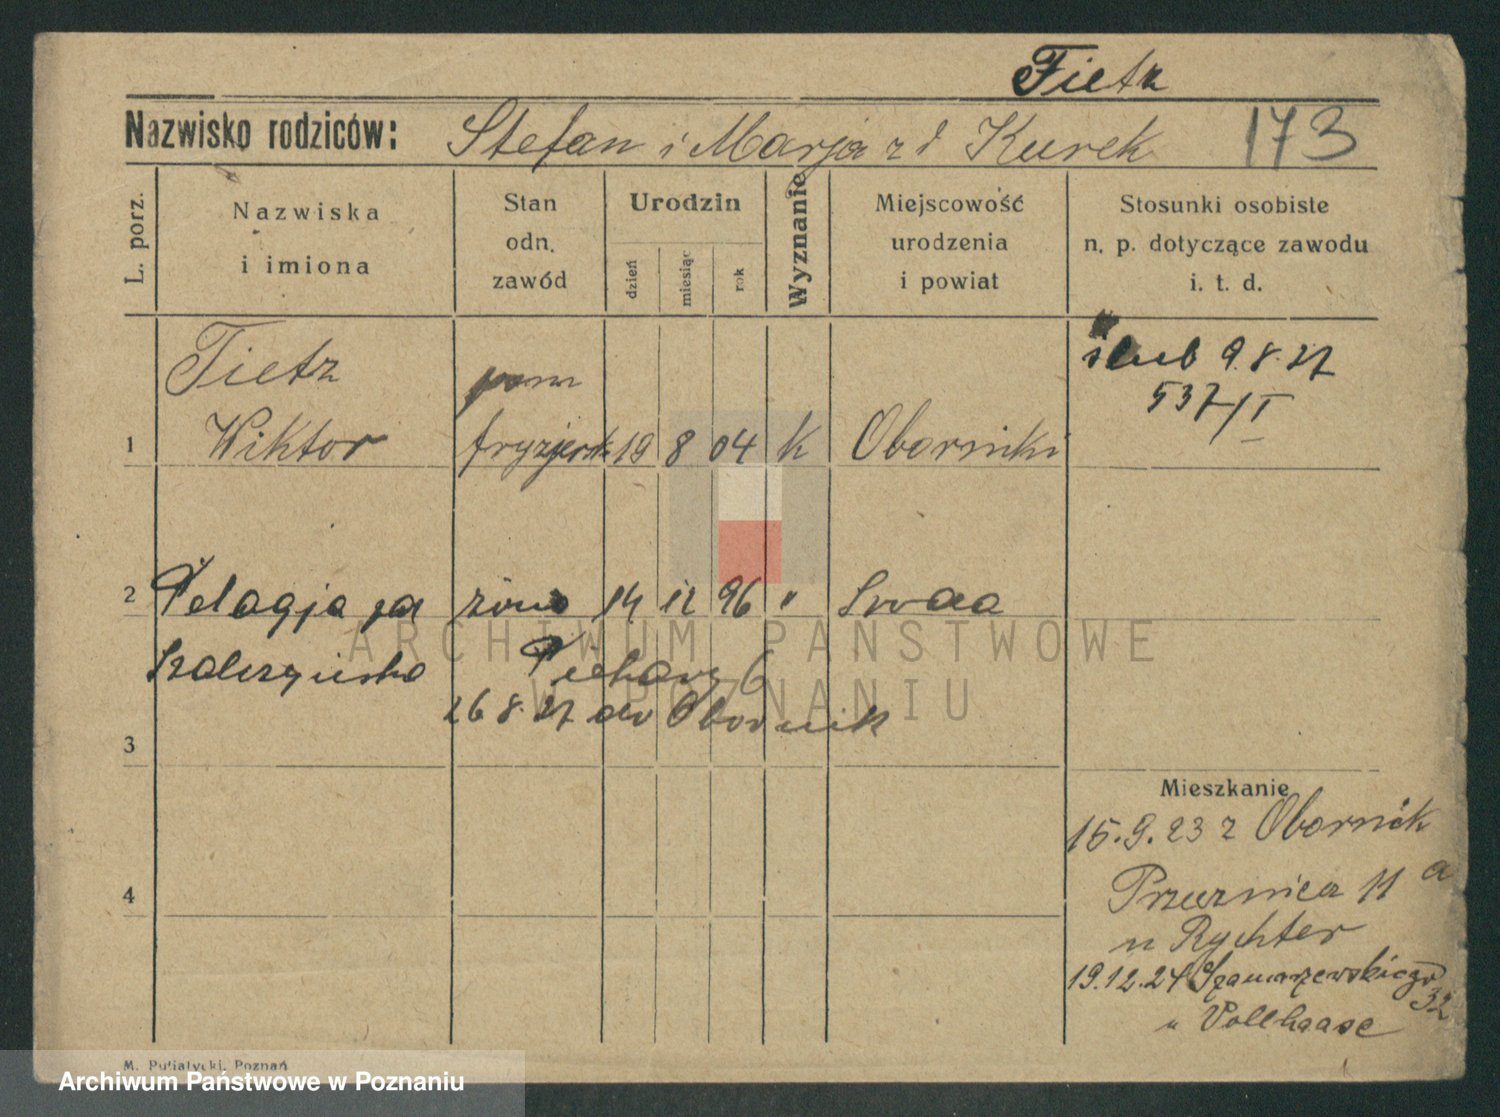 Tietz
Nazwisko rodziców: Stefan i Marja z d Kurek 173
L. porz.
Nazwiska
i imiona
Stan
odn.
zawód
Urodzin
dzień
miesiąc
rok
Wyznanie
Miejscowość
urodzenia
i powiat
Stosunki osobiste
n. p. dotyczące zawodu
i. t. d.
ślub 9.8.27
537/I
Tietz
1 Wiktor fryzjersk 19 8 04 k Oborniki
2 Pelagja żona 14 12 96 "
Piekary 6
26 8. 27 do Obornik
3
Mieszkanie
15.9.23 z Obornik
4
11 a
u Rychter
19.12.24 Szamarzewskiego
32
u Vollhaase
M. Putiatycki, Poznań
ARCHIWUM PAŃSTWOWE
W POZNANIU
Archiwum Państwowe w Poznaniu